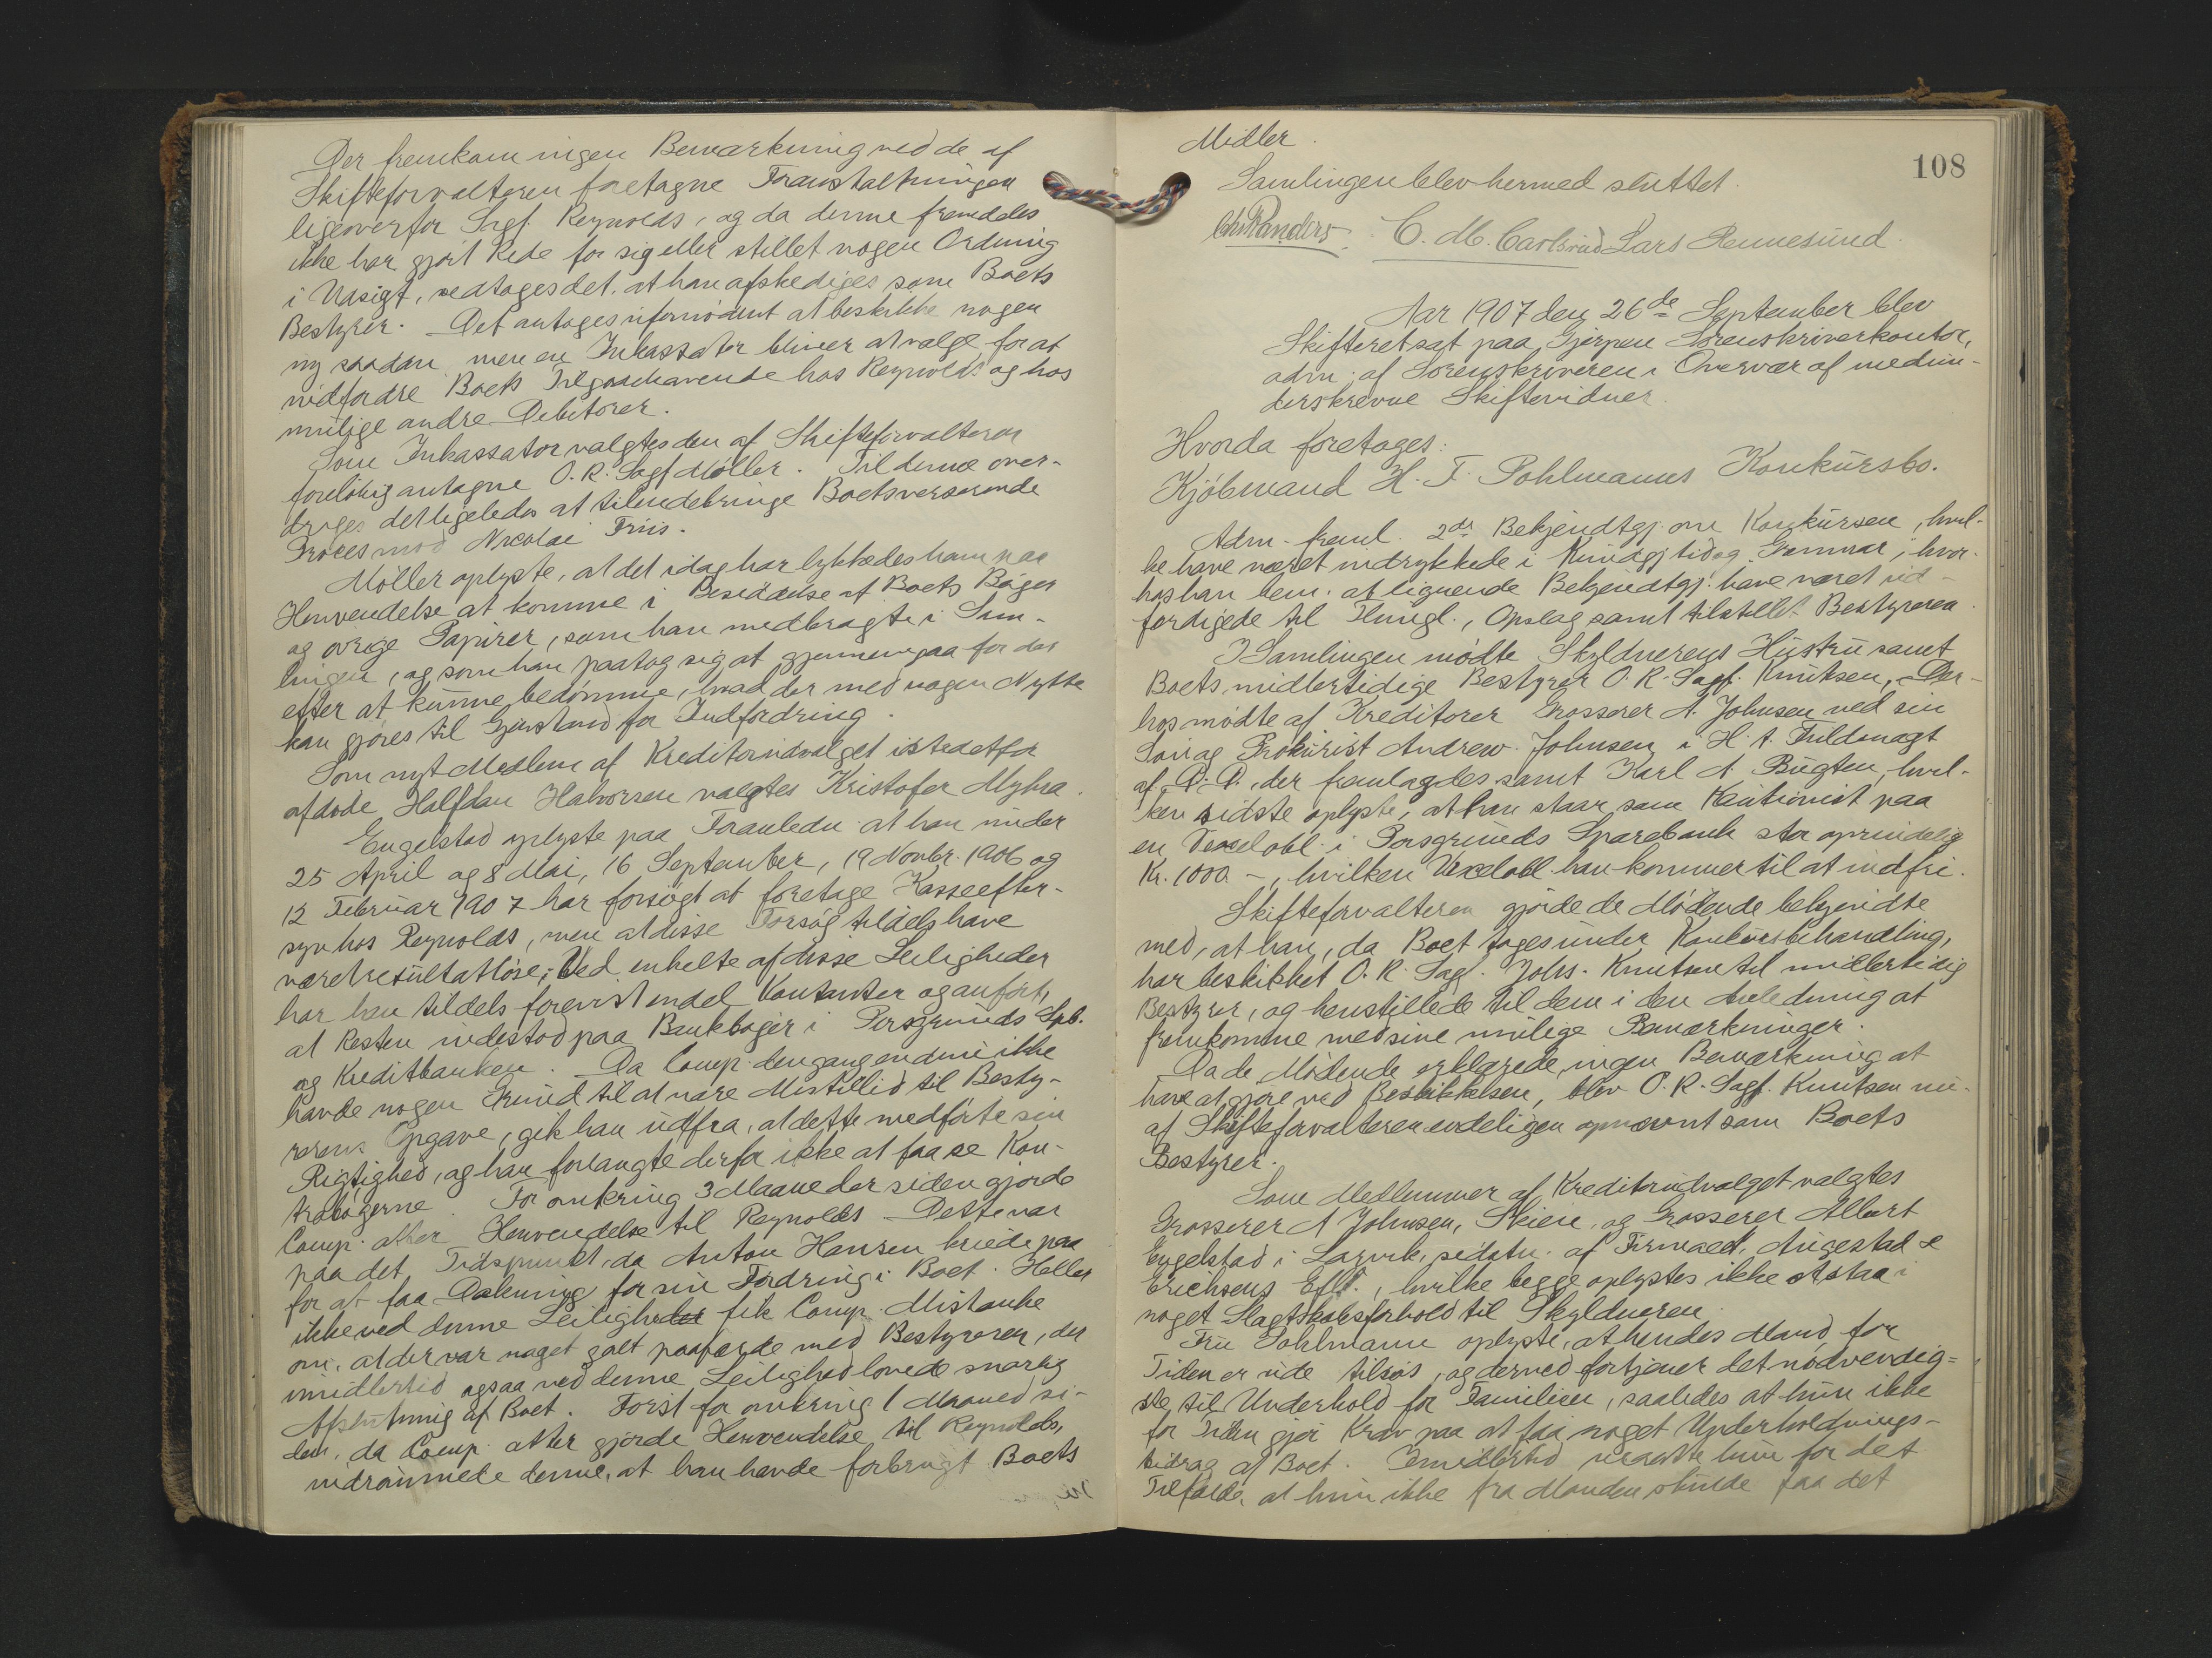 Der fremkom ingen Bemærkning ved de af
Skifteforvalteren foretagne Foranstaltningen
ligeoverfor Sagf. Reynolds, og da denne fremdeles
ikke har gjort Rede for sig eller stillet nogen Ordning
i Udsigt, vedtoges det, at han afskediges som Boets
Bestyrer. Det antoges ufornødent at beskikke nogen
ny saadan, men en Inkassator bliver at vælge for at
indfordre Boets Tilgodehavende hos Reynolds og hos
mulige andre Debitorer.
Som Inkassator valgtes den af Skifteforvalteren
foreløbig antagne O. R. Sagf Møller. Til denne over-
drages det ligeledes at tilendebringe Boets verserende
Proces mod Nicolai Friis.
Møller oplyste, at det idag har lykkedes ham paa
Henvendelse at komme i Besiddelse af Boets Bøger
og øvrige Papirer, som han medbragte i Sam-
lingen, og som han paatog sig at gjennemgaa for der
efter at kunne bedømme, hvad der med nogen Nytte
kan gjøres til Gjenstand for Indfordring.
Som nyt Medlem af Kreditorudvalget istedetfor
afdøde Halfdan Halvorsen valgtes Kristofer Myhra.
Engelstad oplyste paa Foranledn. at han under
25 April og 8 Mai, 16 September, 19 Novbr. 1906 og
12 Februar 1907 har forsøgt at foretage Kasseefter-
syn hos Reynolds, men at disse Forsøg tildels have
været resultatløse; Ved enkelte af disse Leiligheder
har han tildels forevist endel Kontanter og anført,
at Resten indestod paa Bankbøger i Porsgrunds Spb.
og Kreditbanken. Da Comp. dengang endnu ikke
havde nogen Grund til at nære Mistillid til Besty-
rerens Opgave, gik han udfra, at dette medførte sin
Rigtighed, og han forlangte derfor ikke at faa se Kon-
trabøgerne. For omkring 3 Maaneder siden gjorde
Comp. atter Henvendelse til Reynolds. Dette var
paa det Tidspunkt, da Anton Hansen krævede paa
for at faa Dækning for sin Fordring i Boet. Heller
ikke ved denne Leilighed fik Comp. Mistanke
om, at der var noget galt paafærde med Bestyreren, der
imidlertid ogsaa ved denne Leilighed lovede snarlig
Afslutning af Boet. Først for omkring 1 Maaned si-
den, da Comp. atter gjorde Henvendelse til Reynolds,
indrømmede denne, at han havde forbrugt Boets
Midler.
108
Samlingen blev hermed sluttet.
Chr Randers. C. M. Carlsrud Lars Rennesund.
Aar 1907 den 26de September blev
Skifteret sat paa Gjerpen Sorenskriverkontor,
adm. af Sorenskriveren i Overvær af medun-
derskrevne Skiftevidner.
Hvorda foretages:
Kjøbmand H. F. Pohlmanns Konkursbo.
Adm. freml. 2de Bekjendtgj. om Konkursen, hvil-
ke have været indrykkede i Kundgjtid og Grenmar, hvor-
hos han bem. at lignende Bekjendtgj. have været ud-
færdigede til Thingl., Opslag samt tilstillet Bestyreren.
I Samlingen mødte Skyldnerens Hustru samt
Boets midlertidige Bestyrer O. R. Sagf. Knutsen, Der-
hos mødte af Kreditorer Grosserer A. Johnsen ved sin
Søn og Prokurist Andrew Johnsen i H. t. Fuldmagt
af D. D., der fremlagdes samt Karl A. Bugten, hvil-
ken sidste oplyste, at han staar som Kautionist paa
en Vexelobl. i Porsgrunds Sparebank stor oprindelig
Kr. 1000 -, hvilken Vexelobl. han kommer til at indfri.
Skifteforvalteren gjorde de Mødende bekjendte
med, at han, da Boet toges under Konkursbehandling,
har beskikket O. R. Sagf. Johs. Knutsen til midlertidig
Bestyrer, og henstillede til dem i den Anledning at
fremkomme med sine mulige Bemærkninger.
Da de Mødende erklærede, ingen Bemærkning at
have at gjøre ved Beskikkelsen, blev O. R. Sagf. Knutsen nu
af Skifteforvalteren endeligen opnævnt som Boets
Bestyrer.
Som Medlemmer af Kreditorudvalget valgtes
Grosserer A Johnsen, Skien, og Grosserer Albert
Engelstad i Larvik, sidstn. af Firmaet, Angestad &
Erichsens Eftf., hvilke begge oplystes ikke at staa i
noget Slægtskabsforhold til Skyldneren.
Fru Pohlmann oplyste, at hendes Mand for
Tiden er ude tilsøs, og derved fortjener det nødvendig=
ste til Underhold for Familien, saaledes at hun ikke
for Tiden gjør Krav paa at faa noget Underholdnings-
bidrag af Boet. Imidlertid maatte hun for det
Tilfælde, at hun ikke fra Manden skulde faa det